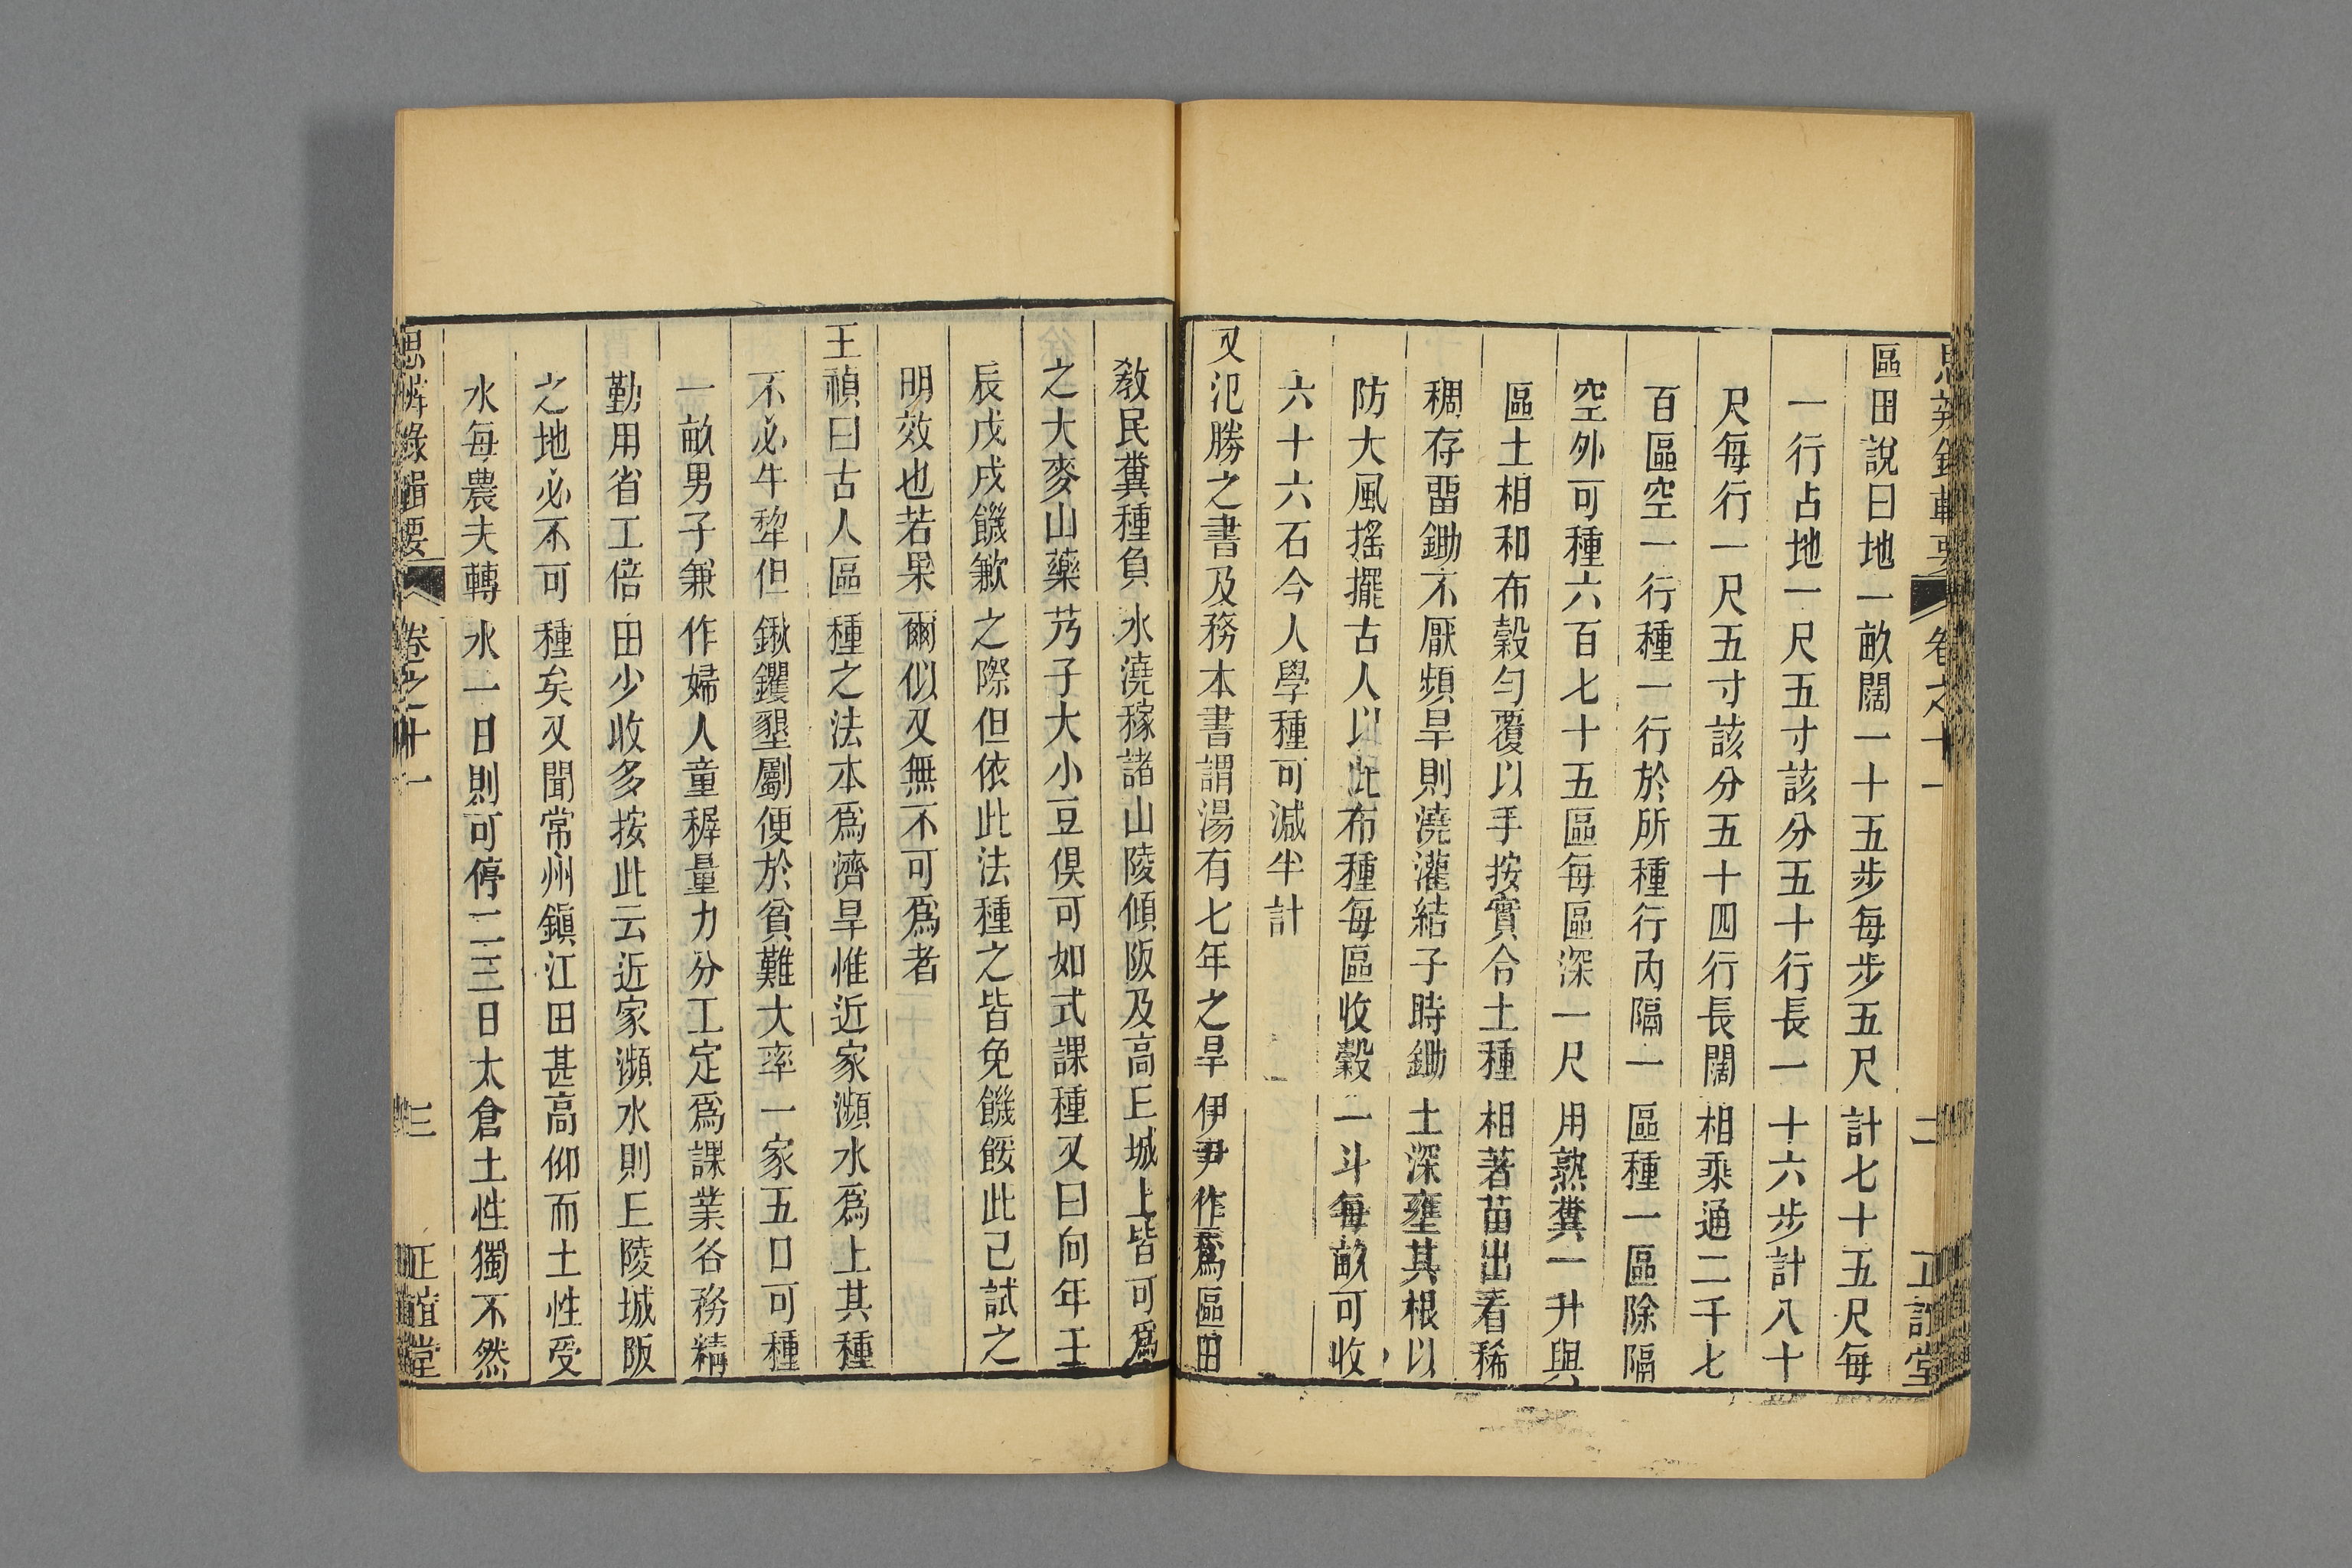 思辨錄輯要
卷之十一
二
正誼堂
區田說曰地一畝闊一十五步每步五尺計七十五尺每
一行占地一尺五寸該分五十行長一十六步計八十
尺每行一尺五寸該分五十四行長闊相乘通二千七
百區空一行種一行於所種行內隔一區種一區除隔
空外可種六百七十五區每區深一尺用熟糞一升與
區土相和布穀勻覆以手按實令土種相著苗出看稀
稠存畱鋤不厭頻旱則澆灌結子時鋤土深壅其根以
防大風搖擺古人以此布種每區收穀一斗每畝可收
六十六石今人學種可減半計
又氾勝之書及務本書謂湯有七年之旱伊尹作爲區田
教民糞種負水澆稼諸山陵傾阪及高丘城上皆可爲
之大麥山藥芀子大小豆俱可如式課種又曰向年壬
辰戊戌饑歉之際但依此法種之皆免饑餒此已試之
明效也若果爾似又無不可爲者
王禎曰古人區種之法本爲濟旱惟近家瀕水爲上其種
不必牛犂但鍬钁墾劚便於貧難大率一家五口可種
一畝男子兼作婦人童穉量力分工定爲課業各務精
勤用省工倍田少收多按此云近家瀕水則丘陵城阪
之地必不可種矣又聞常州鎭江田甚高仰而土性受
水每農夫轉水一日則可停二三日太倉土性獨不然
思辨錄輯要
卷之十一
三
正誼堂